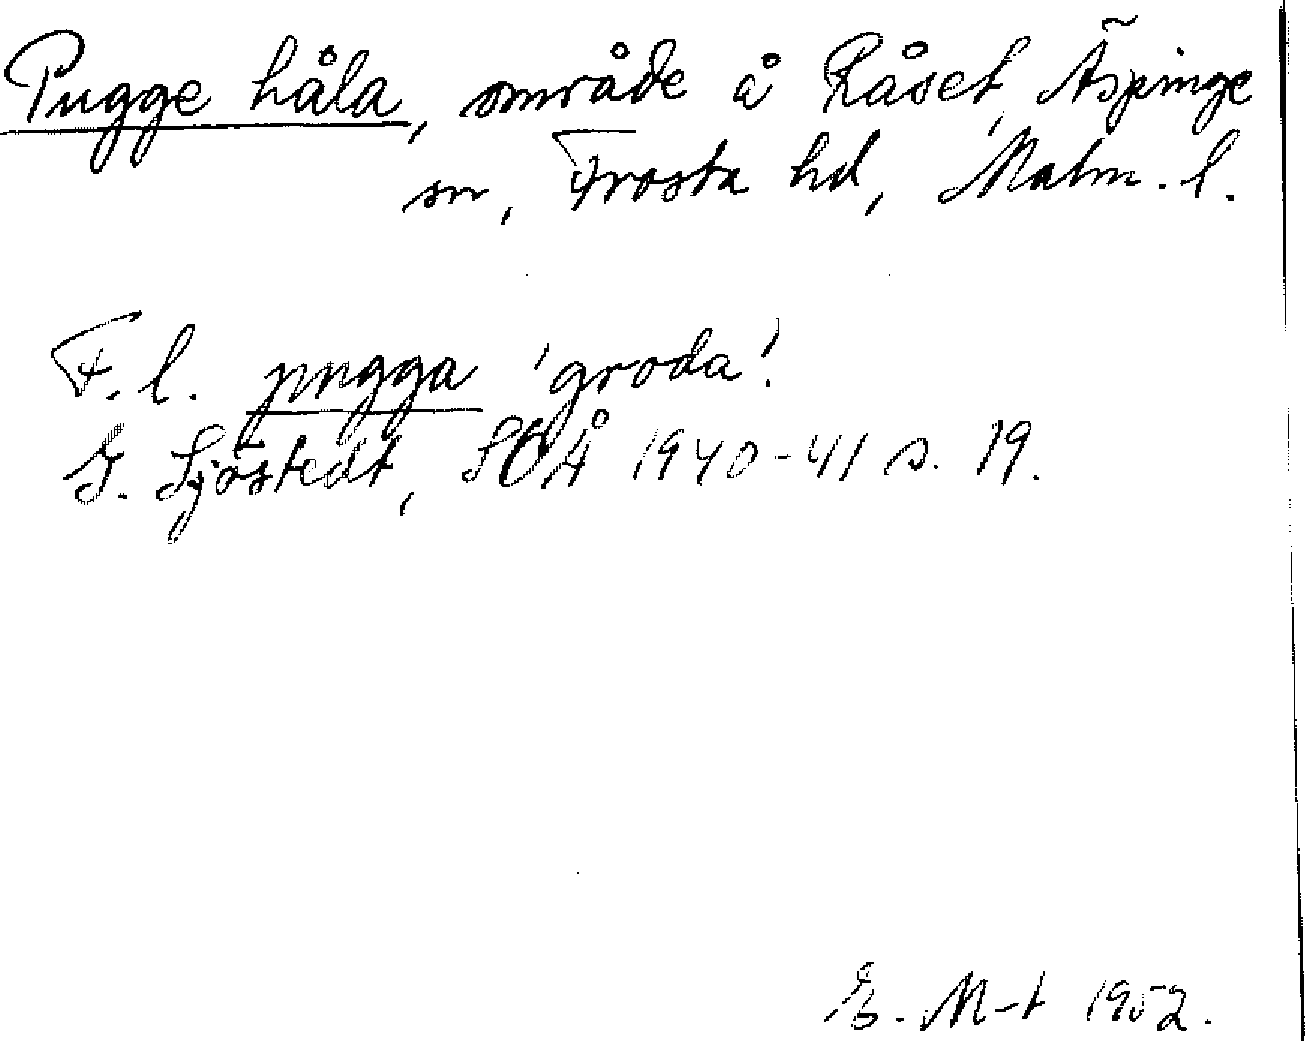 Pugge håla, område å Råset, Äspinge
sn, Frosta hd, Malm. l.
F. l. pugga 'groda'.
G. Sjöstedt, SOÅ 1940-41 s. 19.
E. M-t 1952.